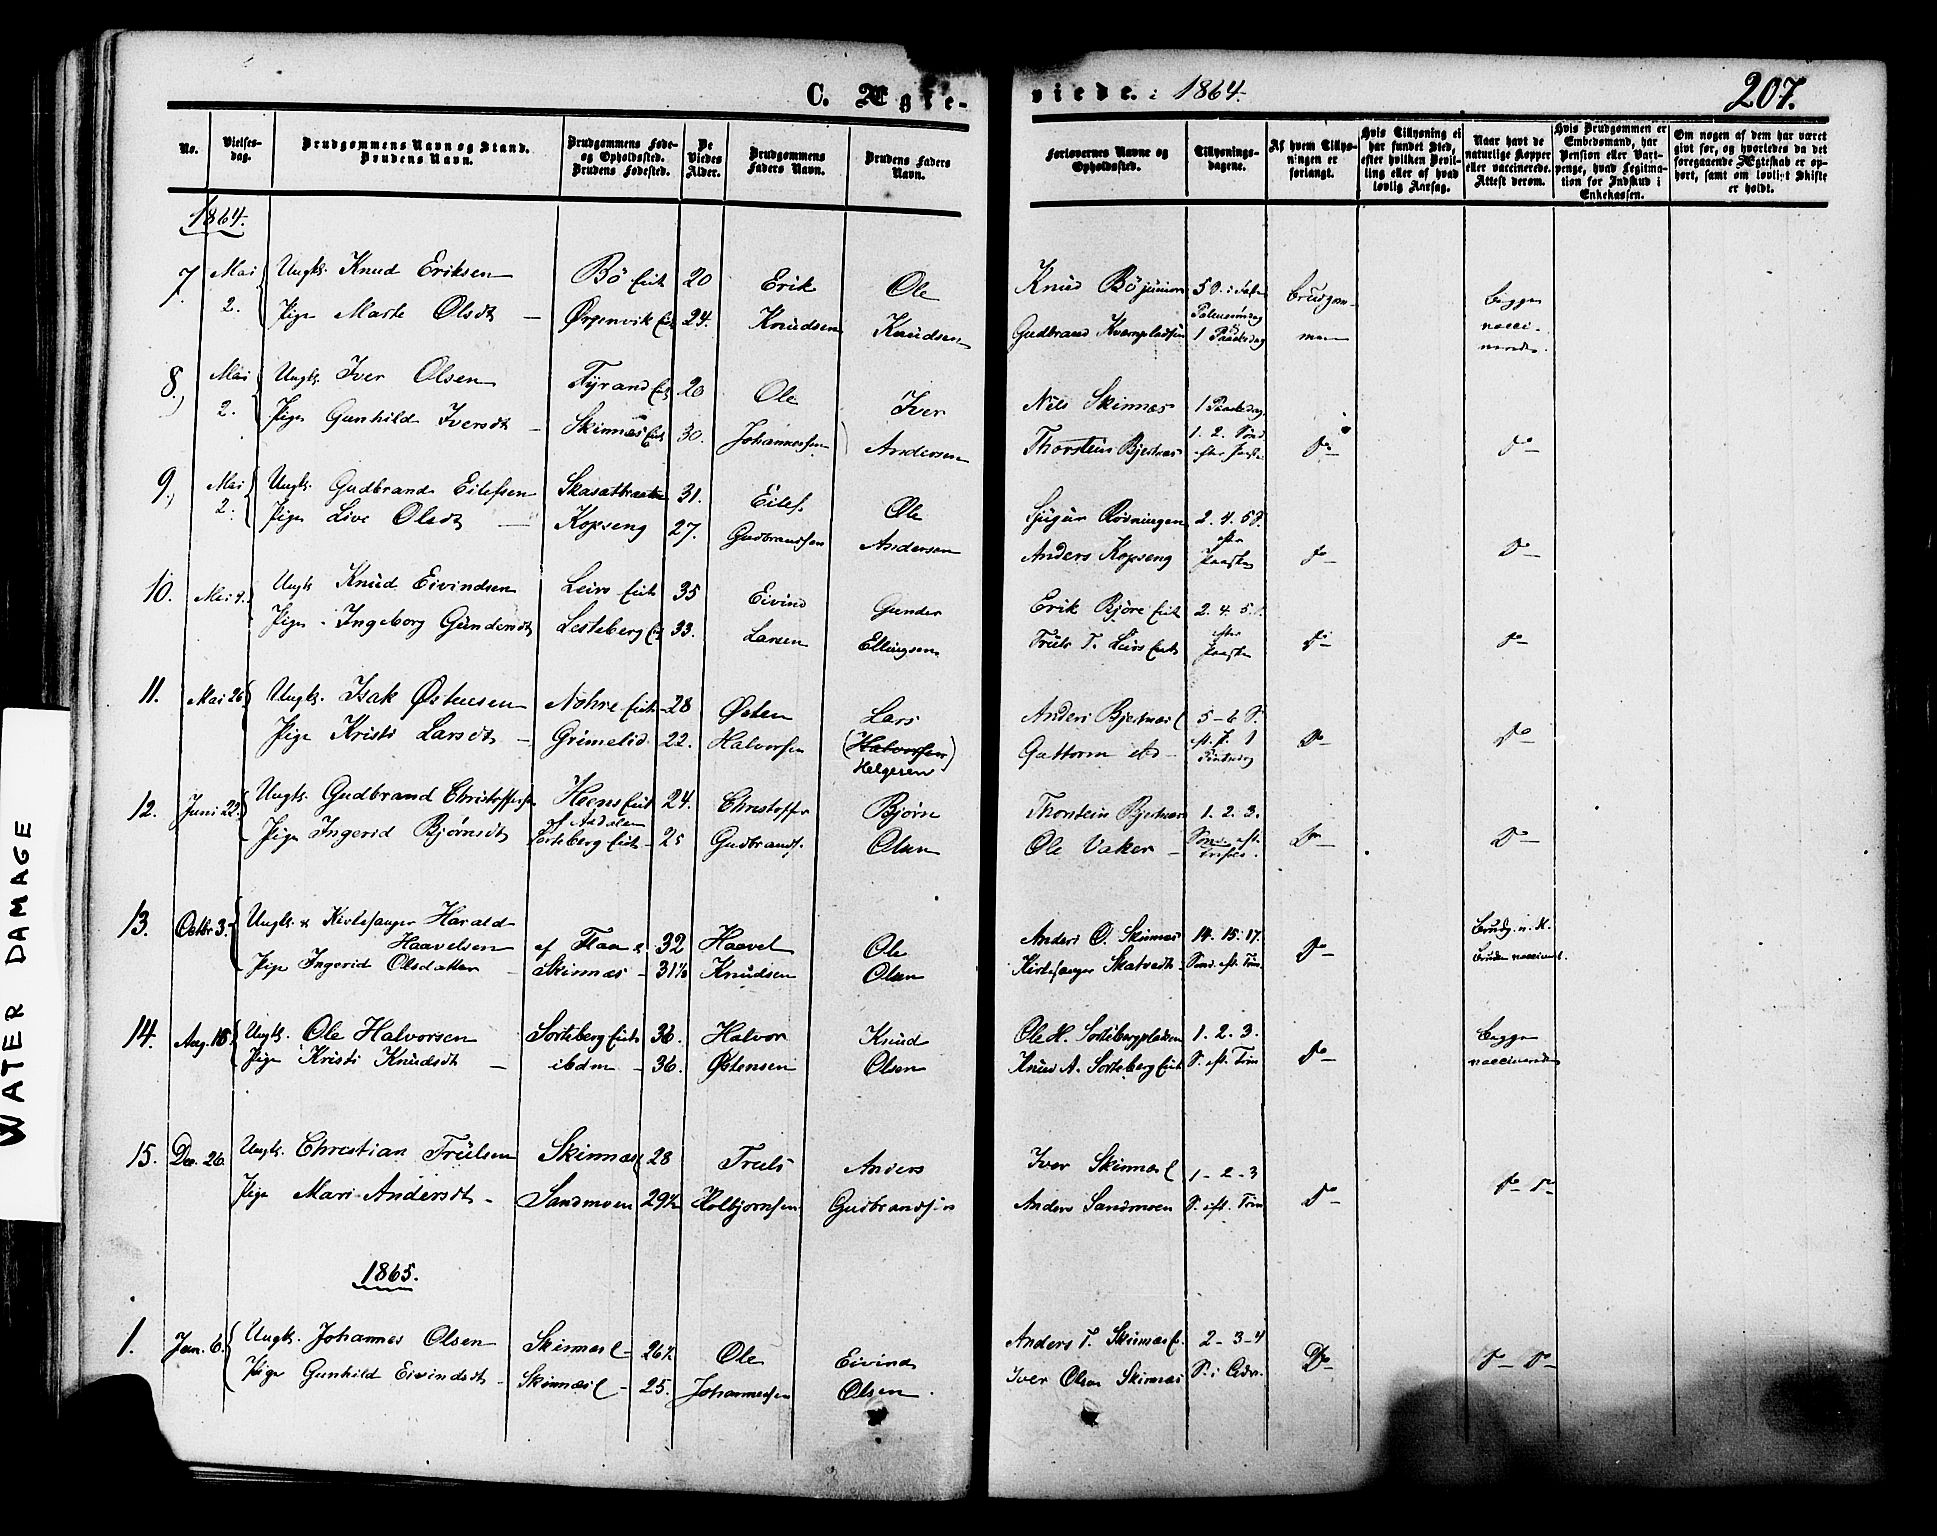 C. Ægte-
viede. : 1864.
207.
No.
Vielses-
dag.
Brudgommens Navn og Stand.
Brudens Navn.
Brudgommens Føde-
og Opholdssted.
Brudens Fødested.
De
Viedes
Alder.
Brudgommens
Faders Navn.
Brudens Faders
Navn.
Forlovernes Navne og
Opholdssted.
Tillysnings-
dagene.
Af hvem Tillys-
ningen er
forlangt.
Hvis Tillysning ei
har fundet Sted,
efter hvilken Bevil-
ling eller af hvad
lovlig Aarsag.
Naar havt de
naturlige Kopper
eller vaccinerede.
Attest derom.
Hvis Brudgommen er
Embedsmand, har
Pension eller Vart-
penge, hvad Legitima-
tion for Indskud i
Enkekassen.
Om nogen af dem har været
givt for, og hvorledes da det
foregaaende Ægteskab er op-
hørt, samt om lovligt Skifte
er holdt.
1864.
7. Mai 2. Ungk. Knud Eriksen Bö eiet 20 Erik Ole Knud Bö junior brudgom- begge
Pige Marte Olsdt Ørgenvik eiet 24. Knudsen Knudsen Gudbrand 1 Paaskedag men vacci-
nerede.
8. Mai 2. Ungk. Iver Olsen Fyrand 20 Ole Iver Nils Skinnæs 1 Paaskedag
Pige Gunhild Iversdt Skinnæs eiet 30. Johannessen Andersen Thorstein Bjertnæs 1. 2. Sønd. Do Do
9. Mai 2. Ungk. Gudbrand Eilefsen 31. Eilef Ole Sjugur Rovningen 2. 4. 5 S.
Pige Live Olsdt Kopseng 27. Gudbrandsen Andersen Anders Kopseng efter Paaske Do Do
10. Mai Ungk. Knud Eivindsen Leirs eiet 35 Eivind Gunder Erik Björe eiet 2. 4. 5 S.
Pige Ingeborg Gundersdt Lesteberg 33. Larsen Ellingsen Truls T. Leirs eiet efter Paaske Do Do
11. Mai 26 Ungk. Isak Østensen Nohre eiet 28 Østen Lars Anders Bjertnæs 5-6 S.
Pige Kristi Larsdt Grimelid 22. Halvorsen (Halvorsen) Helgesen Guttorm Do Do
12. Juni 22. Ungk. Gudbrand Christoffersen Heens eiet 24. Christoffer Bjørn Thorstein Bjertnæs 1. 2. 3.
af Aadalen
Pige Ingerid Bjørnsdt Sorteberg eiet 25 Gudbrands. Olsen Ole Vaker Do Do
13. Octbr 3. Ungk. & Kirkesanger Harald
Haavelsen af Flaa 32 Haavel Ole Anders O. Skinnæs 14. 15. 17. Do Brudg. n. K.
Pige Ingerid Olsdatter Skinnæs 31½ Knudsen Olsen Kirkesanger Skatvedt Sønd. eft. Trin. Bruden vaccineret.
14. Aug. 18. Ungk. Ole Halvorsen Sorteberg eiet 36. Halvor Knud Ole H. Sortebergpladsen 1. 2. 3. Begge
Pige Kristi Knudsdt ibdm 36. Østensen Olsen Knud A. Sorteberg eiet S. eft. Trin Do vaccinerede
15. Dec. 26. Ungk. Christian Trulsen Skinnæs 28 Truls Anders Iver Skinnæs 1-2-3
Pige Mari Andersdt Sandmoen 29½ Kolbjørnsen Gudbrandsen Anders Sandmoen S. eft. Trin Do Do Do
1865.
1. Jan. 6. Ungk. Johannes Olsen Skinnæs 26½ Ole Eivind Anders T. Skinnæs 2-3-4
Pige Gunhild Eivindsdt Skinnæs 25. Johannessen Olsen. Iver Olsen Skinnæs S. i Adv. Do Do Do
WATER DAMAGE